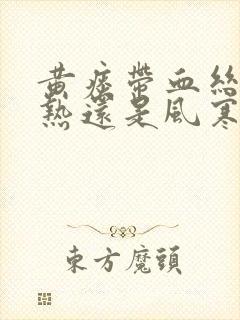 黄痰帶血絲
熱還是風寒
東方魔頭